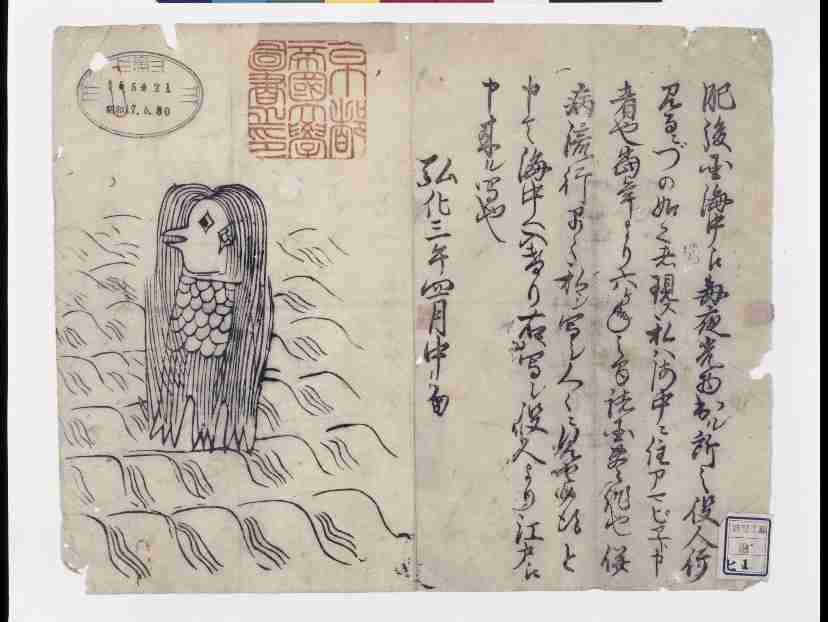 肥後国海中え毎夜光物出ル所之役人行
見るニづの如く者現ス私ハ海中ニ住アマビヱト申
者也當年より六ヶ年之間諸国豊作也併
病流行早々私シ写シ人々ニ見セ候得と
申て海中へ入けり右写シ役人より江戸え
申来ル写也
弘化三年四月中旬
京都
帝國大學
圖書之印
昭和17.5.30
ヒ 1